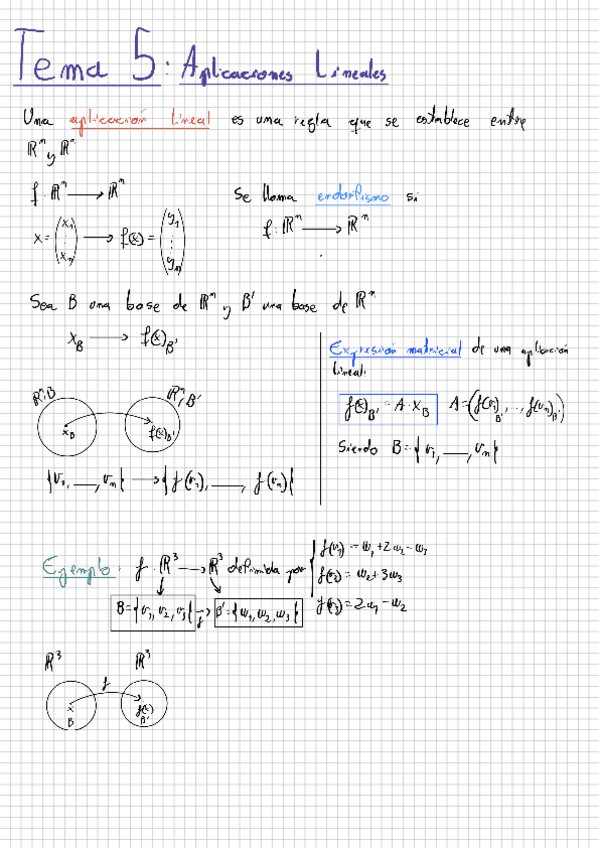 Tema 5: Aplicaciones Lineales
Una aplicación lineal es una regla que se establece entre
ℝⁿ y ℝⁿ
f: ℝⁿ → ℝⁿ
x = (x₁ ⋮ xₙ) → f(x) = (y₁ ⋮ yₙ)
Se llama endorfismo si
f: ℝⁿ → ℝⁿ
Sea B una base de ℝⁿ y B' una base de ℝⁿ
x_B → f(x)_B'
ℝⁿ, B
ℝⁿ, B'
x_B
f(x)_B'
{v₁, __, vₙ} → {f(v₁), __, f(vₙ)}
Expresión matricial de una aplicación
lineal:
f(x)_B' = A · x_B A = (f(v₁)_B', ..., f(vₙ)_B')
Siendo B = {v₁, __, vₙ}
Ejemplo: f: ℝ³ → ℝ³ definida por
f(v₁) = w₁ + 2w₂ - w₃
f(v₂) = w₂ + 3w₃
f(v₃) = 2w₁ - w₂
B = {v₁, v₂, v₃} →f B' = {w₁, w₂, w₃}
ℝ³ ℝ³
f
x
B
f(x)
B'